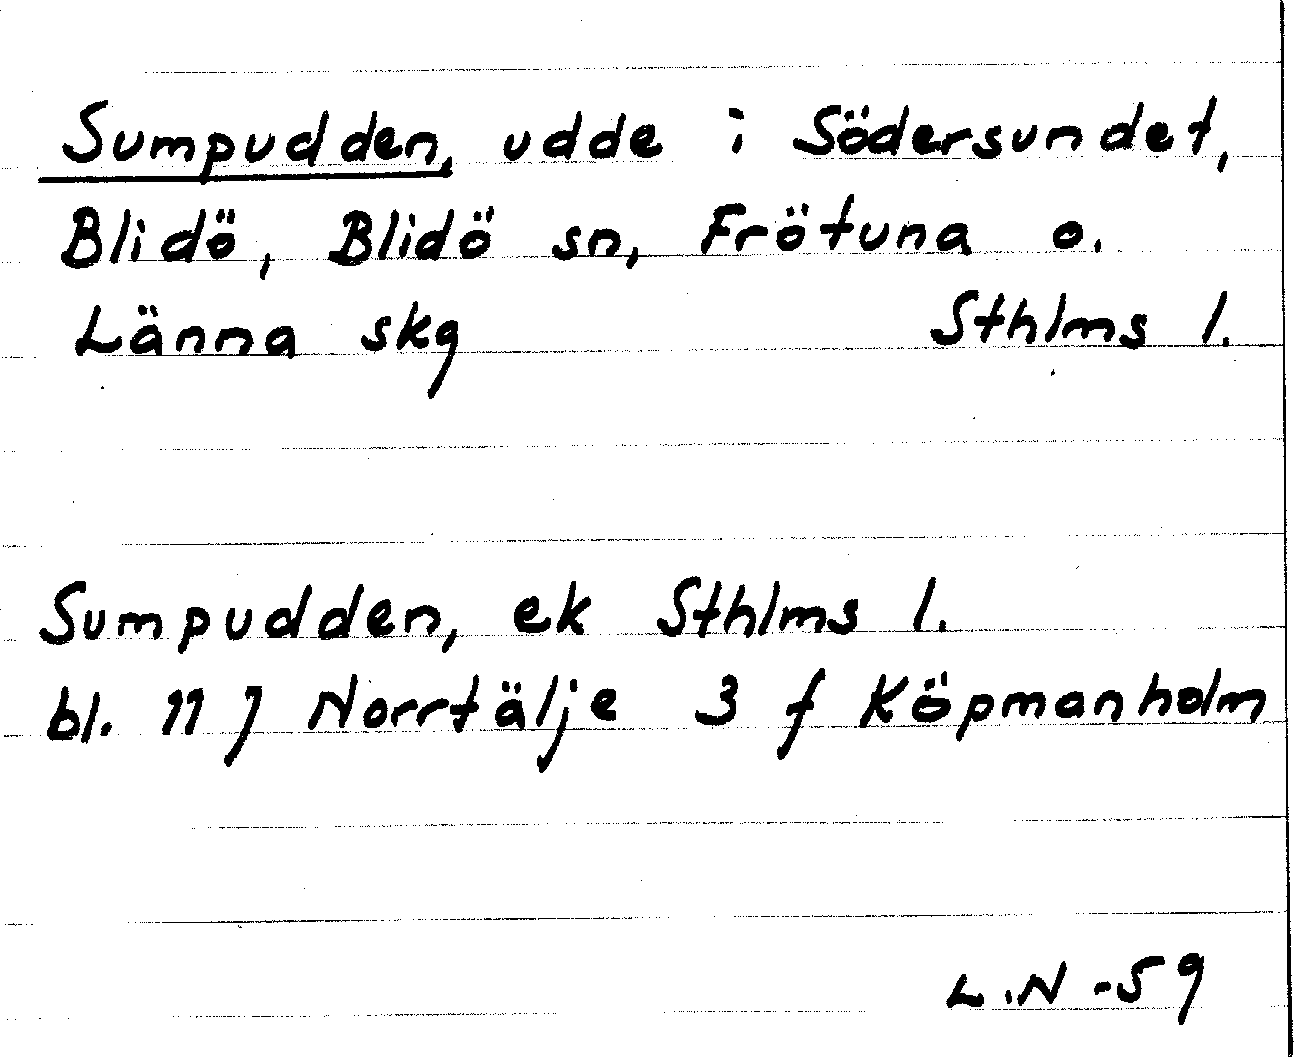 Sumpudden, udde i Södersundet,
Blidö, Blidö sn, Frötuna o.
Länna skg Sthlms l.
Sumpudden, ek Sthlms l.
bl. 11 J Norrtälje 3 f Köpmanholm
L.N -59